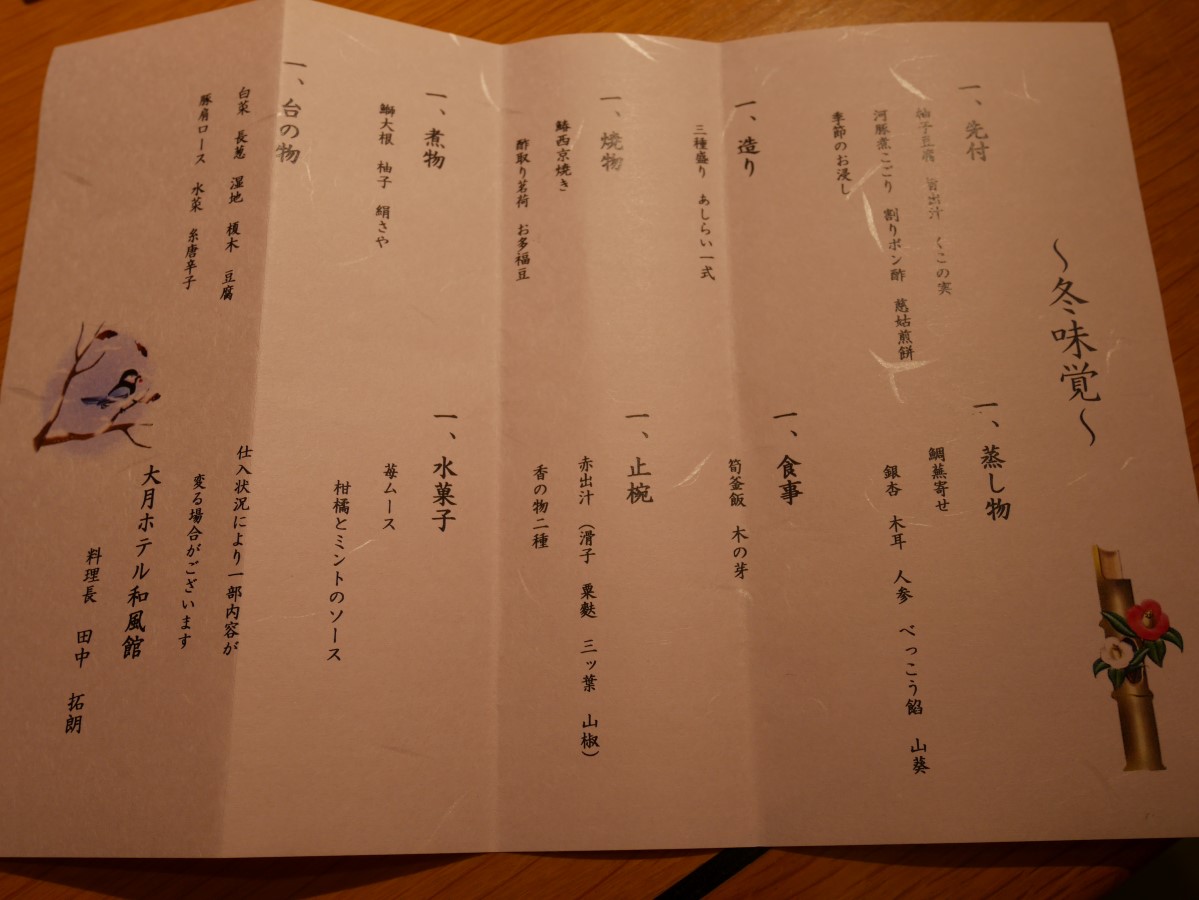 ～冬味覚～
一、先付
柚子豆腐　旨出汁　くこの実
河豚煮こごり　割りポン酢　慈姑煎餅
季節のお浸し
一、造り
三種盛り　あしらい一式
一、焼物
鰆西京焼き
酢取り茗荷　お多福豆
一、煮物
鰤大根　柚子　絹さや
一、台の物
白菜　長葱　湿地　榎木　豆腐
豚肩ロース　水菜　糸唐辛子
一、蒸し物
鯛蕪寄せ
銀杏　木耳　人参　べっこう餡　山葵
一、食事
筍釜飯　木の芽
一、止椀
赤出汁（滑子　粟麩　三ッ葉　山椒）
香の物二種
一、水菓子
苺ムース
柑橘とミントのソース
仕入状況により一部内容が
変る場合がございます
大月ホテル和風館
料理長　田中　拓朗